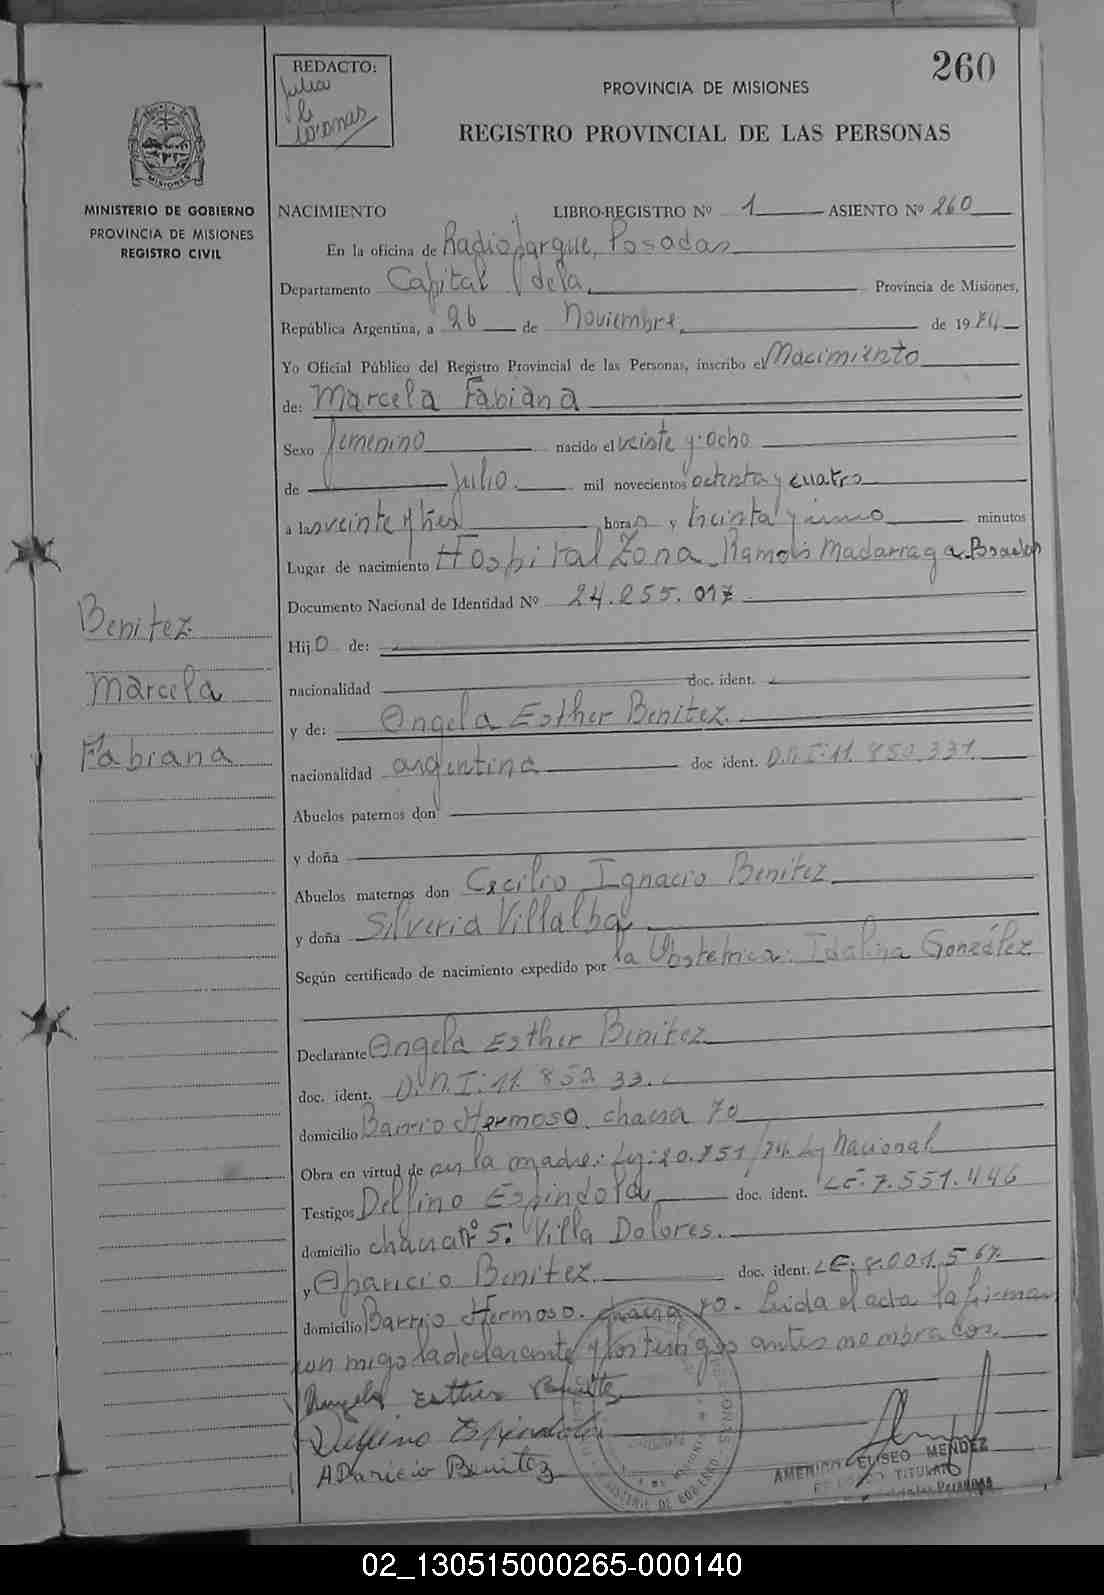 260
REDACTO:
Julia
PROVINCIA DE MISIONES
REGISTRO PROVINCIAL DE LAS PERSONAS
MISIONES
MINISTERIO DE GOBIERNO
PROVINCIA DE MISIONES
REGISTRO CIVIL
NACIMIENTO LIBRO-REGISTRO Nº 1 ASIENTO Nº 260
En la oficina de Radioparque, Posadas
Departamento Capital de la Provincia de Misiones,
República Argentina, a 26 de Noviembre de 1984
Yo Oficial Público del Registro Provincial de las Personas, inscribo el Nacimiento
de: Marcela Fabiana
Sexo femenino nacido el veinte y ocho
de Julio mil novecientos octenta y cuatro
a las veinte y tres horas y treinta y uno minutos
Lugar de nacimiento Hospital Zona Ramón Madarriaga Posadas
Documento Nacional de Identidad Nº 24.255.017
Hijo de:
nacionalidad doc. ident.
y de: Angela Esther Benitez
nacionalidad argentina doc ident. D.N.I: 11.850.331
Abuelos paternos don
y doña
Abuelos maternos don Cecilio Ignacio Benitez
y doña Silveria Villalba
Según certificado de nacimiento expedido por la Obstetrica: Idalina González
Declarante Angela Esther Benitez
doc. ident. D.N.I: 11.852 33.
domicilio Barrio Hermoso. chacra 70
Obra en virtud de ser la madre: Ley: 20.751/74 Ley Nacional
Testigos Delfino Espindola doc. ident. LE: 7.551.446
domicilio chacra Nº 5: Villa Dolores.
y Aparicio Benitez doc. ident. LE. 8.001.567
domicilio Barrio Hermoso. chacra 70. Leida el acta la firman
con migo la declarante y los testigos antes nombrados
Angela Esther Benitez
Delfino Espindola
Aparicio Benitez
AMERICO ELISEO MENDEZ
TITULAR
Benitez
Marcela
Fabiana
02_130515000265-000140